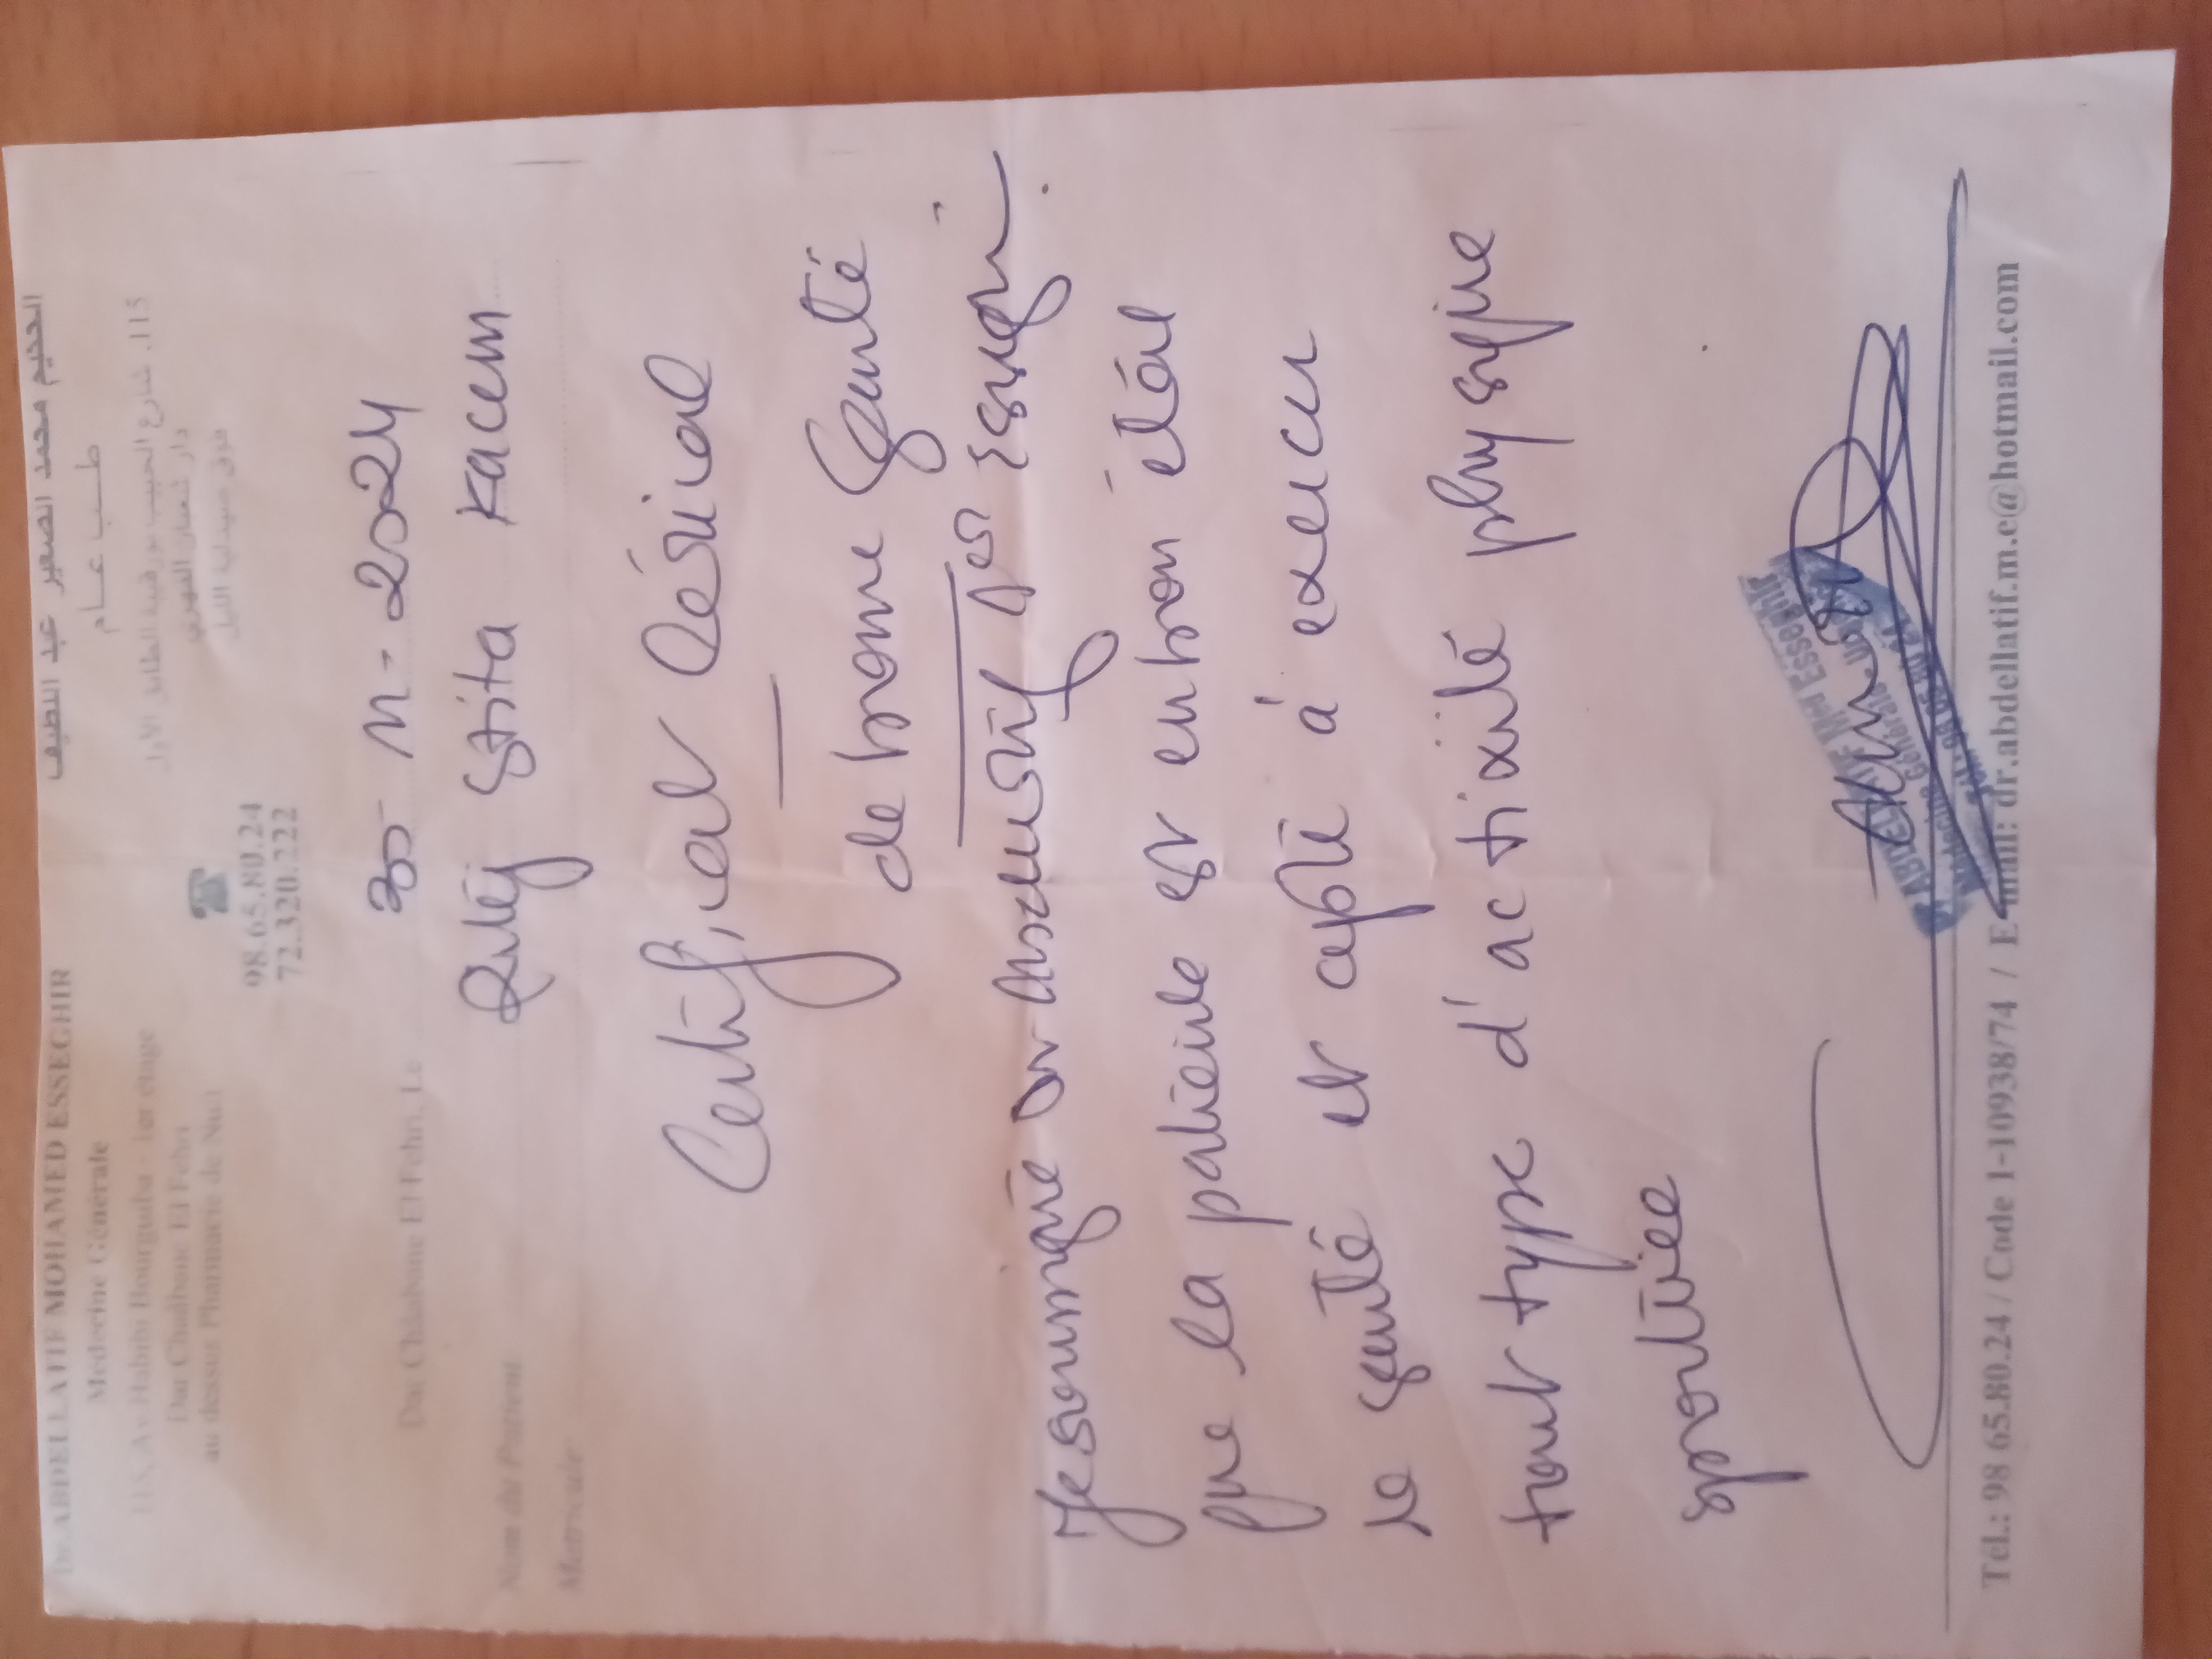 Dr. ABDELLATIF MOHAMED ESSEGHIR
Médecine Générale
115, Av Habibi Bourguiba - 1er étage
Dar Chaâbane El Fehri
au dessus Pharmacie de Nuit
الحكيم محمد الصغير عبد اللطيف
طــب عــام
115، شارع الحبيب بورقيبة الطابق الأول
دار شعبان الفهري
فوق صيدلية الليل
98.65.80.24
72.320.222
Dar Châabane El Fehri, Le 30-11-2024
Nom du Patient Kacem
Matricule
Certificat Médical
de bonne Santé
Je soussigné Dr Abdellatif Med Esseghir
que la patiente est en bon état
de santé et apte à exercer
tout type d'activité physique
sportive
ABDELLATIF Med Esseghir
Médecine Générale
Tél.: 98 65.80.24 / Code 1-10938/74 / E-mail: dr.abdellatif.m.e@hotmail.com